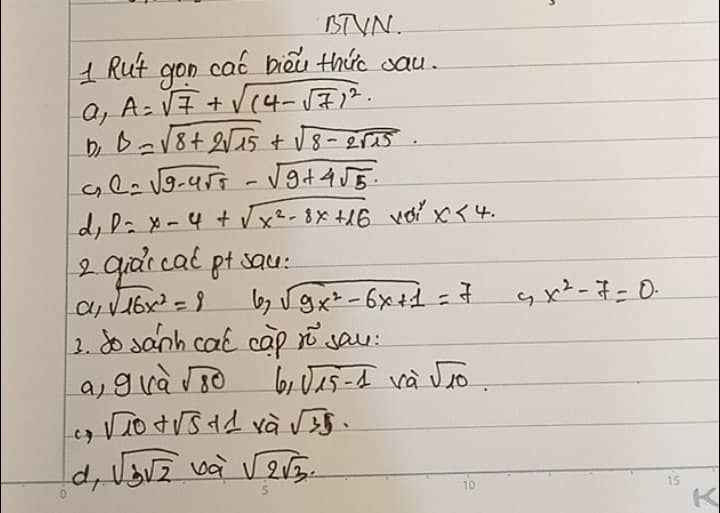 BTVN.
1 Rút gọn các biểu thức sau.
a, A = √7 + √(4-√7)².
b, B = √8+2√15 + √8-2√15.
c, C = √9-4√5 - √9+4√5.
d, D = x-4 + √x²-8x+16 với x<4.
2 giải các pt sau:
a, √16x² = 8 b, √9x²-6x+1 = 7 c, x²-7=0.
3. So sánh các cặp số sau:
a, 9 và √80 b, √15-1 và √10.
c, √10+√5+1 và √35.
d, √3√2 và √2√3.
0 5 10 15
K